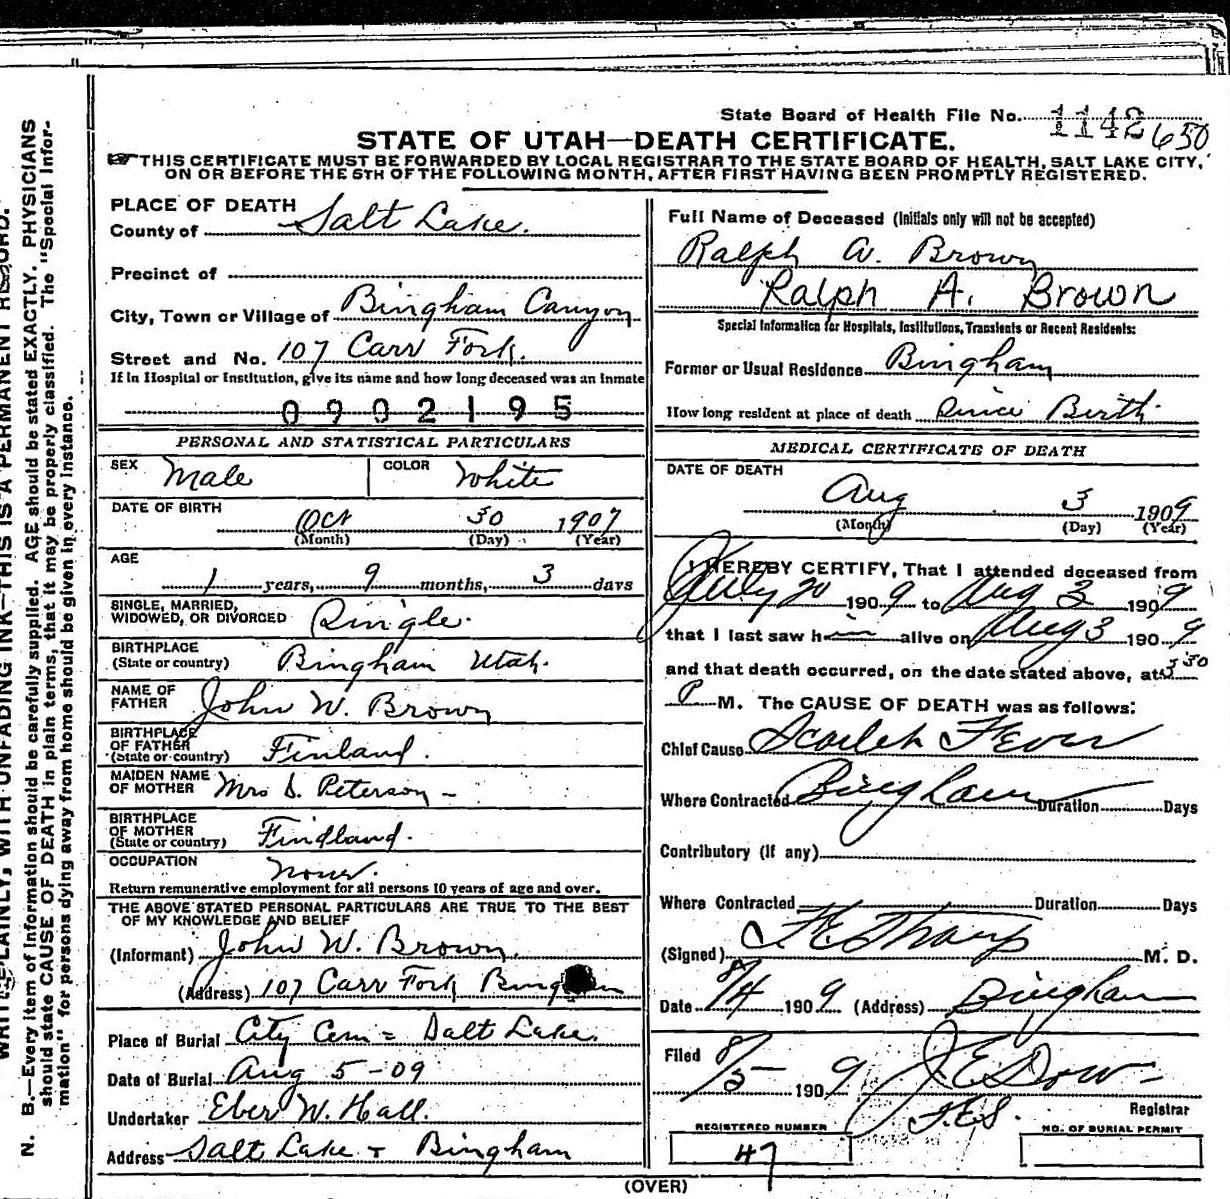 State Board of Health File No. 1142 650
STATE OF UTAH—DEATH CERTIFICATE.
THIS CERTIFICATE MUST BE FORWARDED BY LOCAL REGISTRAR TO THE STATE BOARD OF HEALTH, SALT LAKE CITY,
ON OR BEFORE THE 5TH OF THE FOLLOWING MONTH, AFTER FIRST HAVING BEEN PROMPTLY REGISTERED.
PLACE OF DEATH
County of Salt Lake.
Precinct of
City, Town or Village of Bingham Canyon
Street and No. 107 Carr Fork.
If in Hospital or Institution, give its name and how long deceased was an inmate
0902195
PERSONAL AND STATISTICAL PARTICULARS
SEX Male COLOR White
DATE OF BIRTH
Oct 30 1907
(Month) (Day) (Year)
AGE
1 years, 9 months, 3 days
SINGLE, MARRIED,
WIDOWED, OR DIVORCED Single.
BIRTHPLACE
(State or country) Bingham Utah.
NAME OF
FATHER John W. Brown
BIRTHPLACE
OF FATHER
(State or country) Finland.
MAIDEN NAME
OF MOTHER Mrs S. Peterson -
BIRTHPLACE
OF MOTHER
(State or country) Findland.
OCCUPATION
None.
Return remunerative employment for all persons 10 years of age and over.
THE ABOVE STATED PERSONAL PARTICULARS ARE TRUE TO THE BEST
OF MY KNOWLEDGE AND BELIEF
(Informant) John W. Brown.
(Address) 107 Carr Fork Bingham
Place of Burial City Cem = Salt Lake.
Date of Burial Aug 5-09
Undertaker Eber W. Hall.
Address Salt Lake + Bingham
Full Name of Deceased (Initials only will not be accepted)
Ralph A. Brown
Ralph A. Brown
Special Information for Hospitals, Institutions, Transients or Recent Residents:
Former or Usual Residence Bingham
How long resident at place of death Since Birth.
MEDICAL CERTIFICATE OF DEATH
DATE OF DEATH
Aug 3 1909
(Month) (Day) (Year)
I HEREBY CERTIFY, That I attended deceased from
July 20 1909 to Aug 3 1909
that I last saw him alive on Aug 3 1909
and that death occurred, on the date stated above, at 3 30
P M. The CAUSE OF DEATH was as follows:
Chief Cause Scarlet Fever
Where Contracted Bingham Duration Days
Contributory (If any)
Where Contracted Duration Days
(Signed) F E Tharp M. D.
Date 8/4 1909 (Address) Bingham
Filed 8/5- 1909 J. E. Dow-
F.E.S. Registrar
REGISTERED NUMBER
47
NO. OF BURIAL PERMIT
(OVER)
WRITE PLAINLY, WITH UNFADING INK—THIS IS A PERMANENT RECORD.
N. B.—Every item of information should be carefully supplied. AGE should be stated EXACTLY. PHYSICIANS
should state CAUSE OF DEATH in plain terms, that it may be properly classified. The "Special Infor-
mation" for persons dying away from home should be given in every instance.